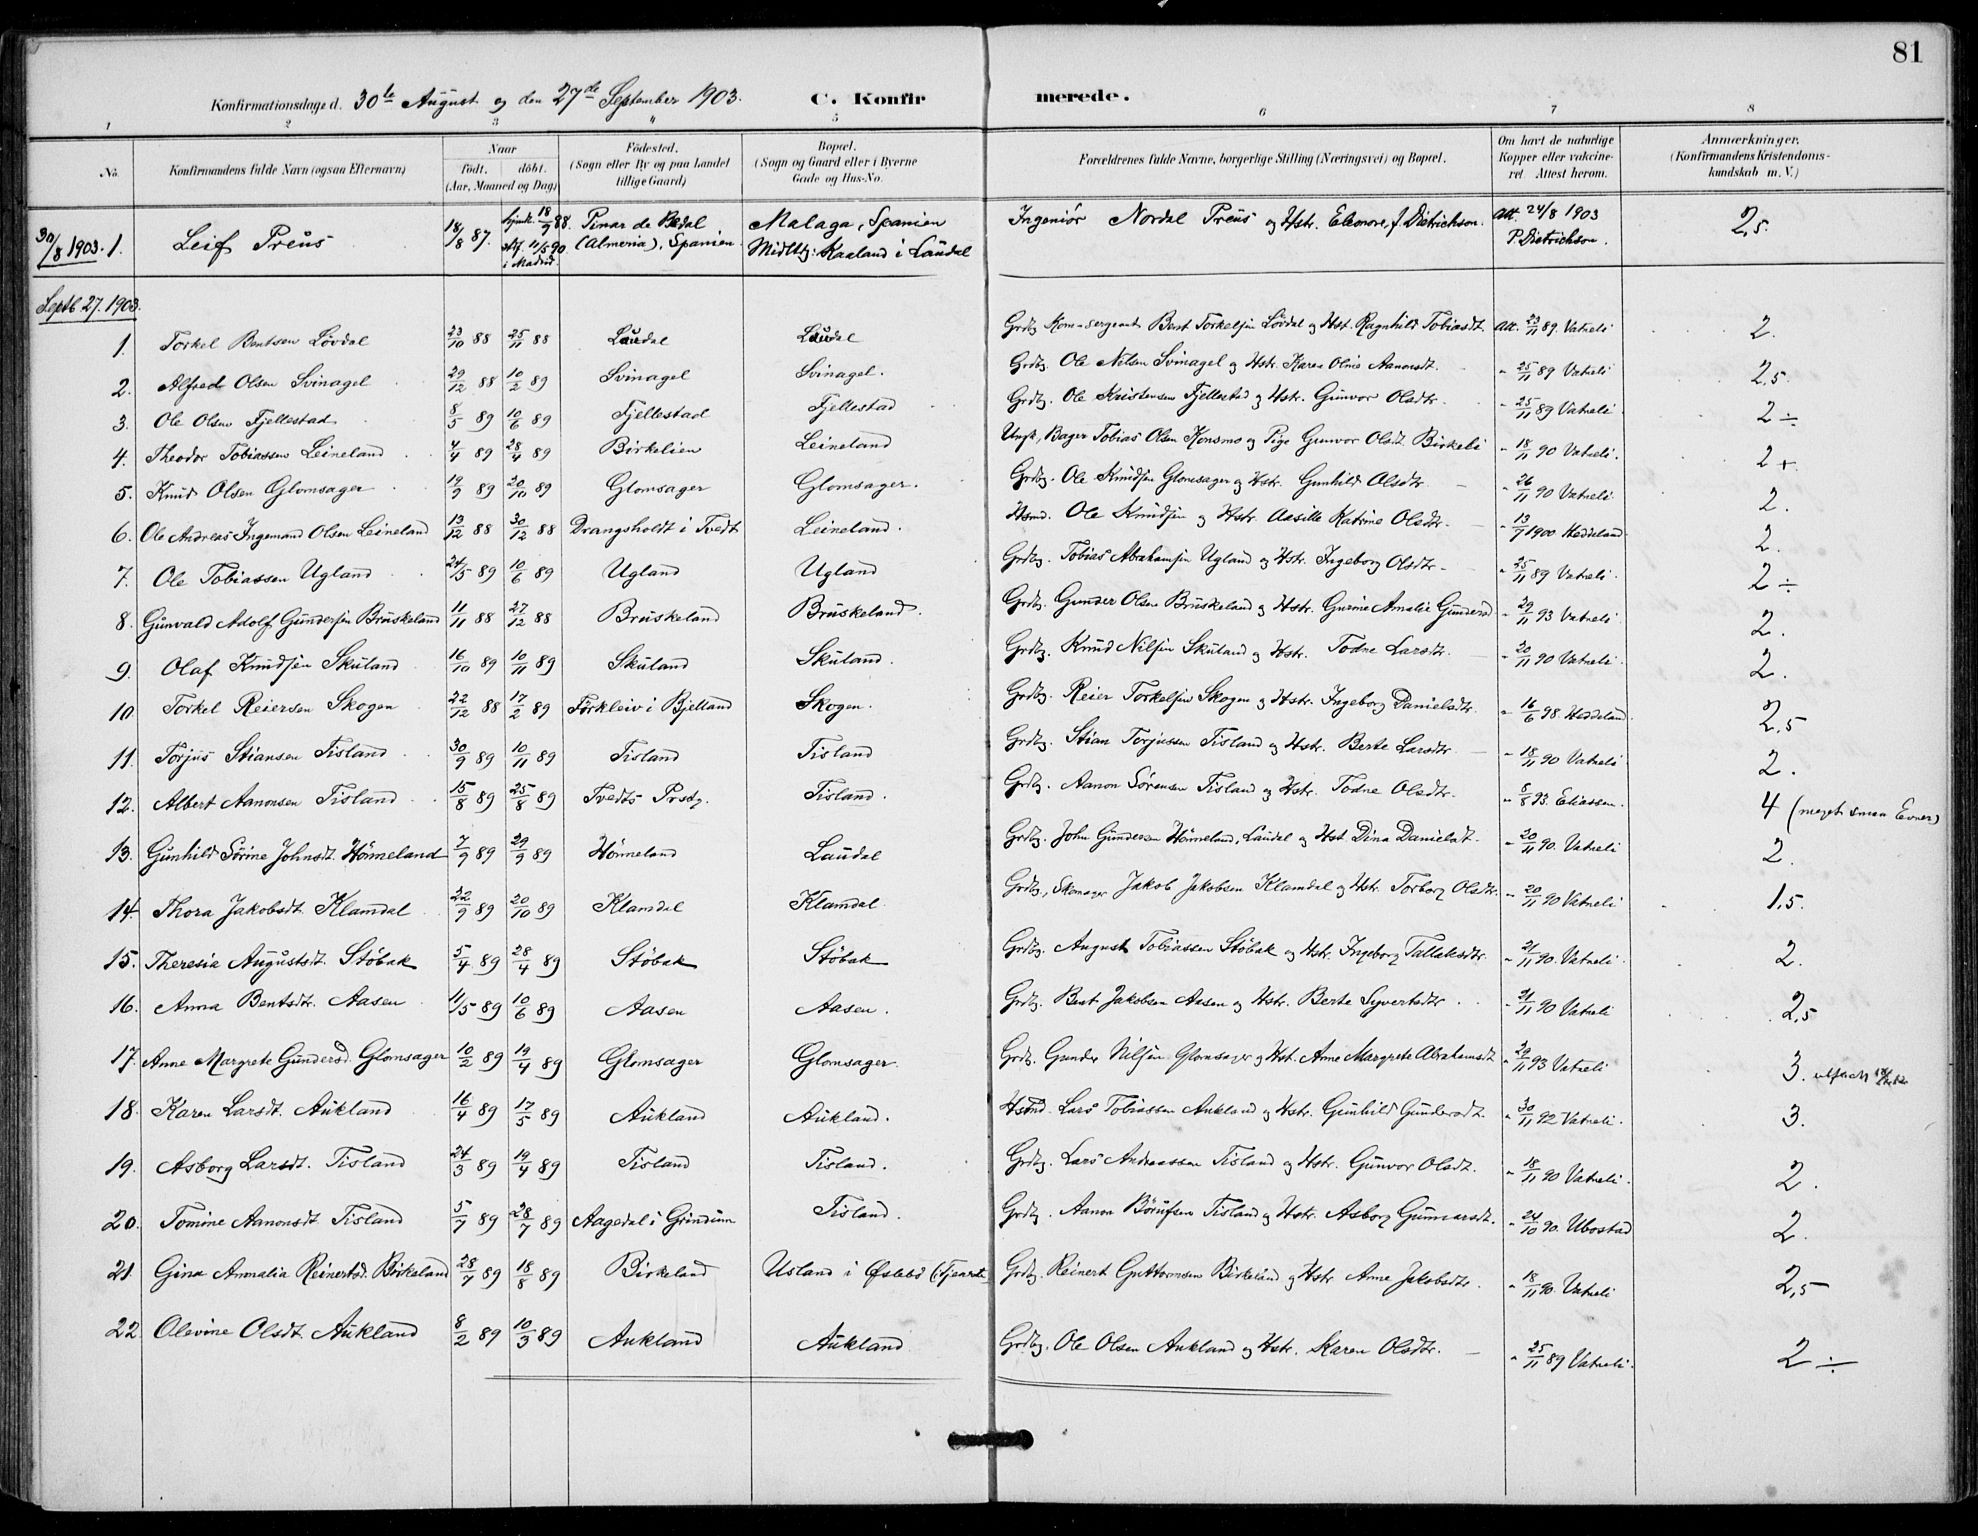 81
Konfirmationsdage d. 30te August og den 27de September 1903. C. Konfirmerede.
1 2 3 4 5 6 7 8
No. Konfirmandens fulde Navn (ogsaa Efternavn) Naar født. døbt. (Aar, Maaned og Dag) Fødested. (Sogn eller By og paa Landet tillige Gaard) Bopæl. (Sogn og Gaard eller i Byerne Gade og Hus-No. Forældrenes fulde Navne, borgerlige Stilling (Næringsvei) og Bopæl. Om havt de naturlige Kopper eller vakcineret. Attest herom. Anmærkninger. (Konfirmandens Kristendomskundskab m. V.)
30/8 1903. 1. Leif Preus 18/8 87. hjmd. 18/9 88. stf. 11/5 90 i Madrid. Pinar de Bedal (Almeria), Spanien Malaga, Spanien Midltg: Kaaland i Laudal Ingeniør Nordal Preus og Hstr. Eleonore, f. Dietrichson. Att. 24/8 1903 P. Dietrichson. 2,5.
Septb 27. 1903.
1. Torkel Bentsen Løvdal 23/10 88 25/11 88 Laudal Laudal Grdbg. Kom-sergeant Bent Torkelsen Løvdal og Hst. Ragnhild Tobiasdt. Att. 23/11 89. Vatneli 2.
2. Alfred Olsen Svinagel 29/12 88 10/2 89 Svinagel Svinagel. Grdbg. Ole Nilsen Svinagel og Hstr. Karen Oline Aanonsdt. " 25/11 89 Vatneli 2,5.
3. Ole Olsen Fjellestad 8/5 89 10/6 89 Fjellestad Fjellestad Grdbg. Ole Kristensen Fjellestad og Hstr. Gunvor Olsdtr. " 25/11 89 Vatneli 2 ÷
4. Theodor Tobiassen Leineland 4/4 89 28/4 89 Birkelien Leineland Ungk., Bager Tobias Olsen Konsmo og Pige Gunvor Olsdt. Birkeli " 18/11 90 Vatneli. 2 +.
5. Knud Olsen Glomsager 19/9 89 20/10 89 Glomsager Glomsager. Grdbg. Ole Knudsen Glomsager og Hstr. Gunhild Olsdtr. " 26/11 90 Vatneli 2.
6. Ole Andreas Ingemand Olsen Leineland 13/12 88 30/12 88 Drangsholdt i Tvedt Leineland. Hsmd. Ole Knudsen og Hstr. Aasille Katrine Olsdtr. " 13/7 1900 Heddeland 2.
7. Ole Tobiassen Ugland 24/5 89 10/6 89 Ugland Ugland Grdbg. Tobias Abrahamsen Ugland og Hstr. Ingeborg Olsdtr. " 25/11 89 Vatneli. 2 ÷
8. Gunvald Adolf Gundersen Bruskeland 11/11 88 27/12 88 Bruskeland Bruskeland. Grdbg. Gunder Olsen Bruskeland og Hstr. Gurine Amalie Gundersd " 29/11 93 Vatneli 2.
9. Olaf Knudsen Skuland 16/10 89 10/11 89 Skuland Skuland. Grdbg. Knud Nilsen Skuland og Hstr. Todne Larsdtr. " 20/11 90 Vatneli. 2.
10. Torkel Reiersen Skogen 22/12 88 17/2 89 Forkleiv i Bjelland Skogen. Grdbg. Reier Torkelsen Skogen og Hstr. Ingeborg Danielsdtr. " 16/6 98. Heddeland. 2,5
11. Torjus Stiansen Tisland 30/9 89 10/11 89 Tisland Tisland Grdbg. Stian Torjussen Tisland og Hstr. Berte Larsdtr. " 18/11 90 Vatneli 2.
12. Albert Aanonsen Tisland 15/8 89 25/8 89 Tvedts Prstg. Tisland. Grdbg. Aanon Sørensen Tisland og Hstr. Todne Olsdtr. " 8/8 93. Eliassen. 4 (meget smaa Evner)
13. Gunhild Sørine Johnsdt. Hønneland 7/9 89 29/9 89 Hønneland Laudal Grdbg. John Gundersen Hønneland, Laudal og Hst. Dina Danielsdt. " 20/11 90. Vatneli 2.
14. Thora Jakobsdt. Klamdal 22/9 89 20/10 89 Klamdal Klamdal Grdbg., Skomager Jakob Jakobsen Klamdal og Hstr. Torborg Olsdtr. " 20/11 90 Vatneli 1,5.
15. Theresia Augustsdt. Støbak 5/4 89 28/4 89 Støbak Støbak Grdbg. August Tobiassen Støbak og Hstr. Ingeborg Tallaksdtr. " 21/11 90. Vatneli. 2.
16. Anna Bentsdtr. Aasen 11/5 89 10/6 89 Aasen Aasen. Grdbg. Bent Jakobsen Aasen og Hstr. Berte Syvertsdtr. " 21/11 90 Vatneli 2,5
17. Anne Margrete Gundersd. Glomsager 10/2 89 19/4 89 Glomsager Glomsager. Grdbg. Gunder Nilsen Glomsager og Hst. Anne Margrete Abrahamsdt " 29/11 93 Vatneli 3.
18. Karen Larsdt. Aukland 16/4 89 17/5 89 Aukland Aukland. Hsmd. Lars Tobiassen Aukland og Hstr. Gunhild Gundersdt. " 30/11 92 Vatneli. 3.
19. Asborg Larsdt. Tisland 24/3 89 19/4 89 Tisland Tisland. Grdbg. Lars Andreassen Tisland og Hstr. Gunvor Olsdt. " 18/11 90 Vatneli. 2.
20. Tomine Aanonsdt. Tisland 5/7 89 28/7 89 Aagedal i Grindum Tisland. Grdbg. Aanon Børufsen Tisland og Hstr. Asborg Gunnarsdt. " 24/10 90. Ubostad 2.
21. Gina Ammalia Reinertsd. Birkeland 28/7 89 18/8 89 Birkeland Usland i Øslebø (Tjeneste Grdbg. Reinert Guttormsen Birkeland og Hstr. Anne Jakobsdtr. " 18/11 90. Vatneli 2,5
22. Olevine Olsdt. Aukland 8/2 89 10/3 89 Aukland Aukland Grdbg. Ole Olsen Aukland og Hstr. Karen Olsdtr. " 25/11 89 Vatneli. 2 ÷